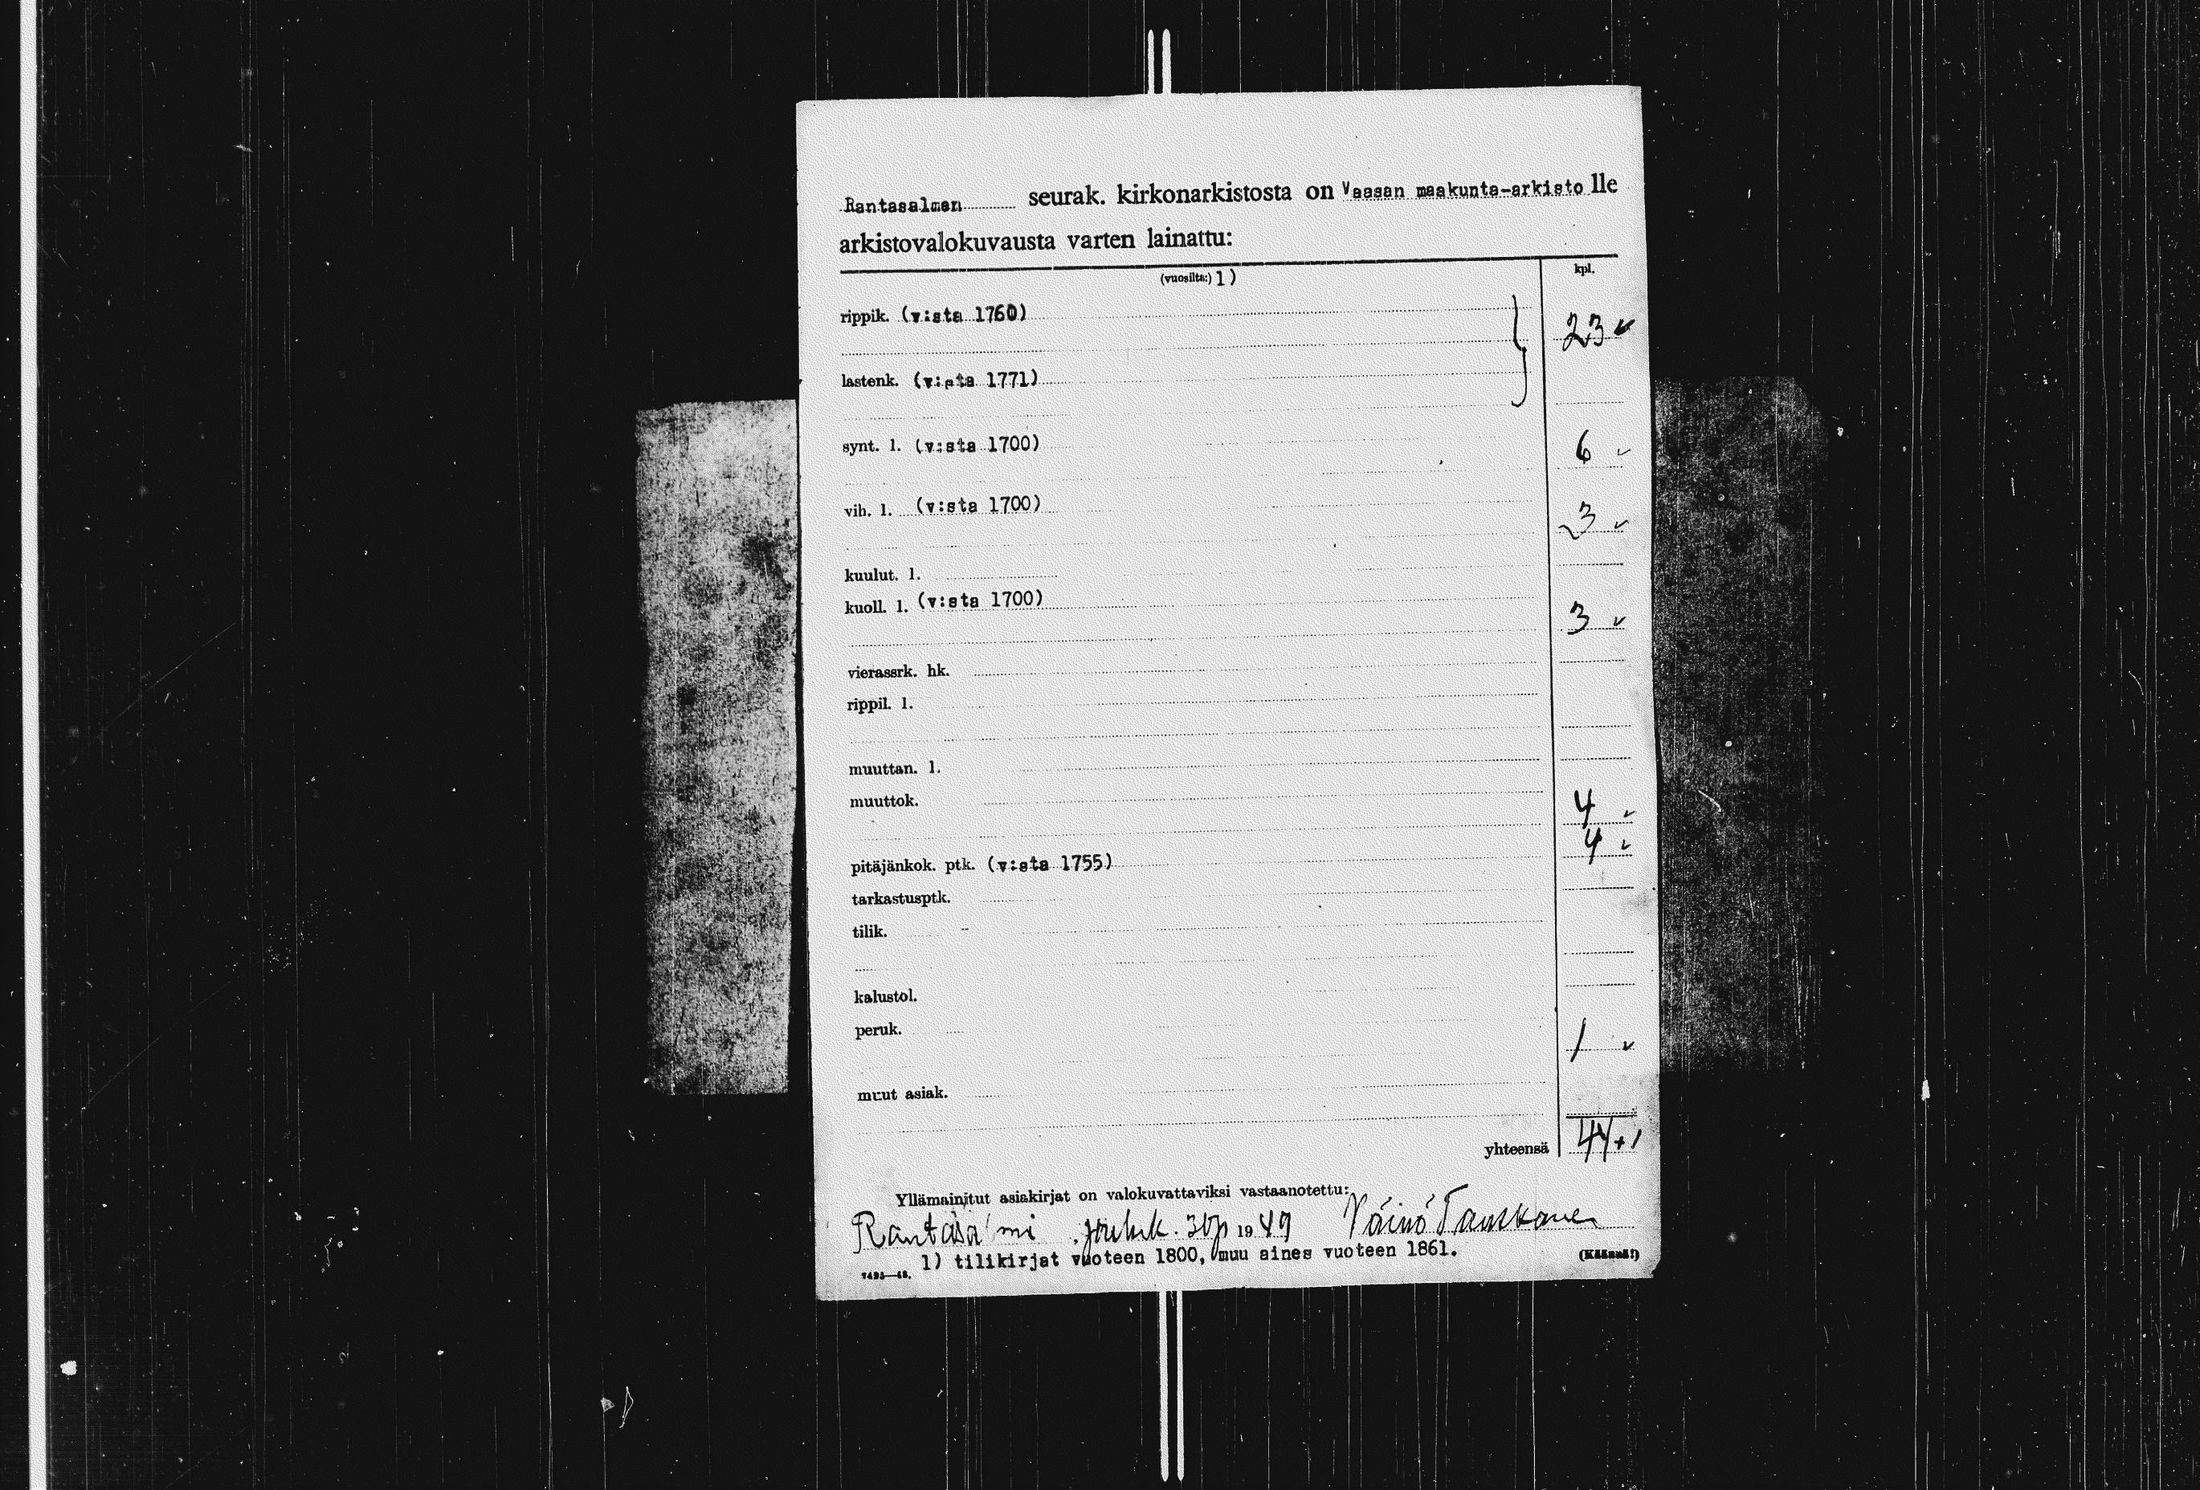 Rantasalmen seurak. kirkonarkistosta on Vaasan maakunta-arkisto lle
arkistovalokuvausta varten lainattu:
(vuosilta:) 1) kpl.
rippik. (v:sta 1760) 23
lastenk. (v:sta 1771)
synt. l. (v:sta 1700) 6
vih. l. (v:sta 1700) 3
kuulut. l.
kuoll. l. (v:sta 1700) 3
vierassrk. hk.
rippil. l.
muuttan. l.
muuttok. 4
pitäjänkok. ptk. (v:sta 1755) 4
tarkastusptk.
tilik.
kalustol.
peruk. 1
muut asiak.
yhteensä 44+1
Yllämainitut asiakirjat on valokuvattaviksi vastaanotettu:
Rantasalmi jouluk. 30p 1949 Väinö
1) tilikirjat vuoteen 1800, muu aines vuoteen 1861. (Käännä!)